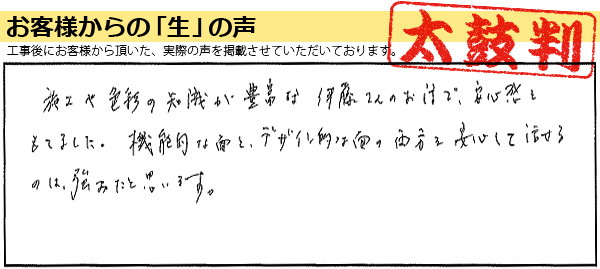 お客様からの「生」の声
太鼓判
工事後にお客様から頂いた、実際の声を掲載させていただいております。
施工や色彩の知識が豊富な伊藤さんのおかげで、安心感を
もてました。機能的な面と、デザイン的な面の両方を安心して話せる
のは、強みだと思います。